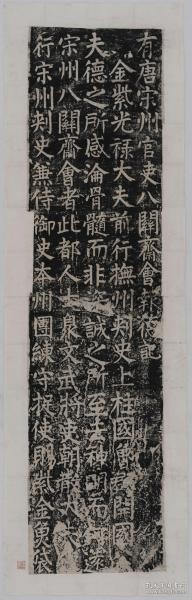 有唐宋州官吏八關齋會報德記
金紫光祿大夫前行撫州刺史上柱國魯郡開國
夫德之所感淪骨髓而非誠之所至去神明而遠
宋州八關齋會者此都人士衆文武將吏朝散大夫
行宋州刺史兼侍御史本州團練守捉使賜紫金魚袋